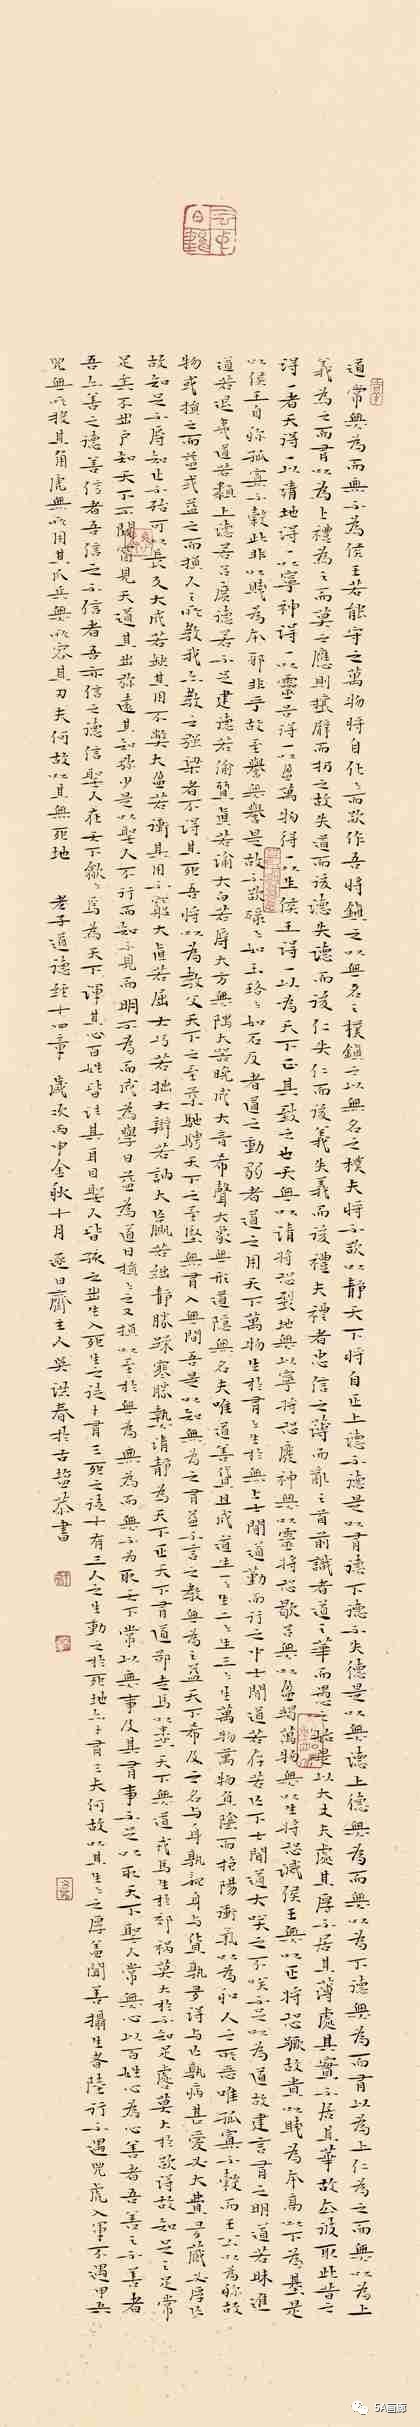 道常無為而無不為侯王若能守之萬物將自化〻而欲作吾將鎮之以無名之樸鎮之以無名之樸夫將不欲以靜天下將自正上德不德是以有德下德不失德是以無德上德無為而無以為下德無為而有以為上仁為之而無以為上
義為之而有以為上禮為之而莫之應則攘臂而扔之故失道而後德失德而後仁失仁而後義失義而後禮夫禮者忠信之薄而亂之首前識者道之華而愚之始是以大丈夫處其厚不居其薄處其實不居其華故去彼取此昔之
得一者天得一以清地得一以寧神得一以靈谷得一以盈萬物得一以生侯王得一以為天下正其致之也天無以清將恐裂地無以寧將恐廢神無以靈將恐歇谷無以盈將恐竭萬物無以生將恐滅侯王無以正將恐蹶故貴以賤為本高以下為基是
以侯王自稱孤寡不穀此非以賤為本邪非乎故至譽無譽是故不欲琭〻如玉珞〻如石反者道之動弱者道之用天下萬物生於有〻生於無上士聞道勤而行之中士聞道若存若亡下士聞道大笑之不笑不足以為道故建言有之明道若昧進
道若退夷道若纇上德若谷廣德若不足建德若偷質真若渝大白若辱大方無隅大器晚成大音希聲大象無形道隱無名夫唯道善貸且成道生一〻生二〻生三〻生萬物萬物負陰而抱陽沖氣以為和人之所惡唯孤寡不穀而王公以為稱故
物或損之而益或益之而損人之所教我亦教之強梁者不得其死吾將以為教父天下之至柔馳騁天下之至堅無有入無間吾是以知無為之有益不言之教無為之益天下希及之名與身孰親身與貨孰多得與亡孰病甚愛必大費多藏必厚亡
故知足不辱知止不殆可以長久大成若缺其用不弊大盈若沖其用不窮大直若屈大巧若拙大辯若訥大贏若絀靜勝躁寒勝熱清靜為天下正天下有道卻走馬以糞天下無道戎馬生於郊禍莫大於不知足咎莫大於欲得故知足之足常
足矣不出戶知天下不闚牖見天道其出彌遠其知彌少是以聖人不行而知不見而明不為而成為學日益為道日損〻之又損以至於無為無為而無不為取天下常以無事及其有事不足以取天下聖人常無心以百姓心為心善者吾善之不善者
吾亦善之德善信者吾信之不信者吾亦信之德信聖人在天下歙〻焉為天下渾其心百姓皆注其耳目聖人皆孩之出生入死生之徒十有三死之徒十有三人之生動之於死地亦十有三夫何故以其生〻之厚蓋聞善攝生者陸行不遇兕虎入軍不遇甲兵
兕無以投其角虎無以用其爪兵無以容其刃夫何故以其無死地 老子道德經十四章 歲次丙申金秋十月 逐日齋主人吳洪春於古鹽恭書
5A画廊